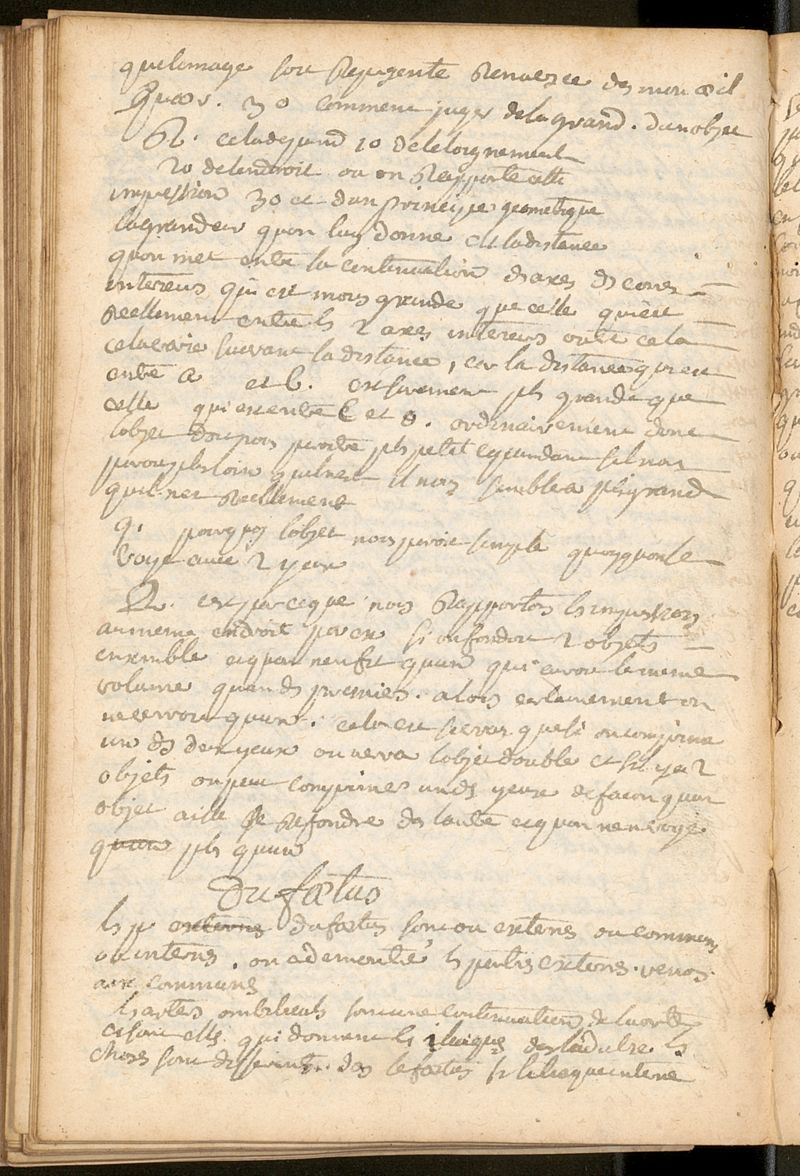 que limage soit Repregente Renversee ds mon œil
Quæs. 3o comment juger de la grand. dun objet
R. cela depend 1o de leloignement
2o delendroit ou on Rapporte cette
impression 3o et dun principe geometrique
la grandeur quon luy donne est la distance
quon met entre la continuation ds axes ds
interieurs qui est moins grande que celle qui est
reellement entre ls 2 axes interieurs outre cela
cela varie suivant la distance, car la distance qui est
entre a et b. est surement pls grande que
celle qui est entre C et D. ordinairement donc
lobjet doit paroitre pls petit cependant sil nous
paroit pls loin quil nest il nous semblera pls grand
quil nest reellement
q. pourquoy lobjet nous paroit simple quoyquon le
voye avec 2 yeux
R. est parceque nous Rapportons ls impressions
au meme endroit par ex si on fondoit 2 objets
ensemble et quon nen fit quun qui auroit le meme
volume quun ds premiers. alors certainement on
ne verroit quun. cela est si vray que si on comprime
un ds deux yeux on verra lobjet double et sil y a 2
objets on peut comprimer un ds yeux de facon quun
objet aille se Refondre ds lautre et quon nen voye
quun pls quun
Du fœtus
ls p externes du fœtus sont ou externes ou communes
ou internes. on a demontré ls parties externes. venons
aux communes
ls arteres ombilicals sont une continuation de laorte
ce sont elles qui donnent ls iliaques ds ladulte. ls
choses sont differentes ds le fœtus liliaque interne